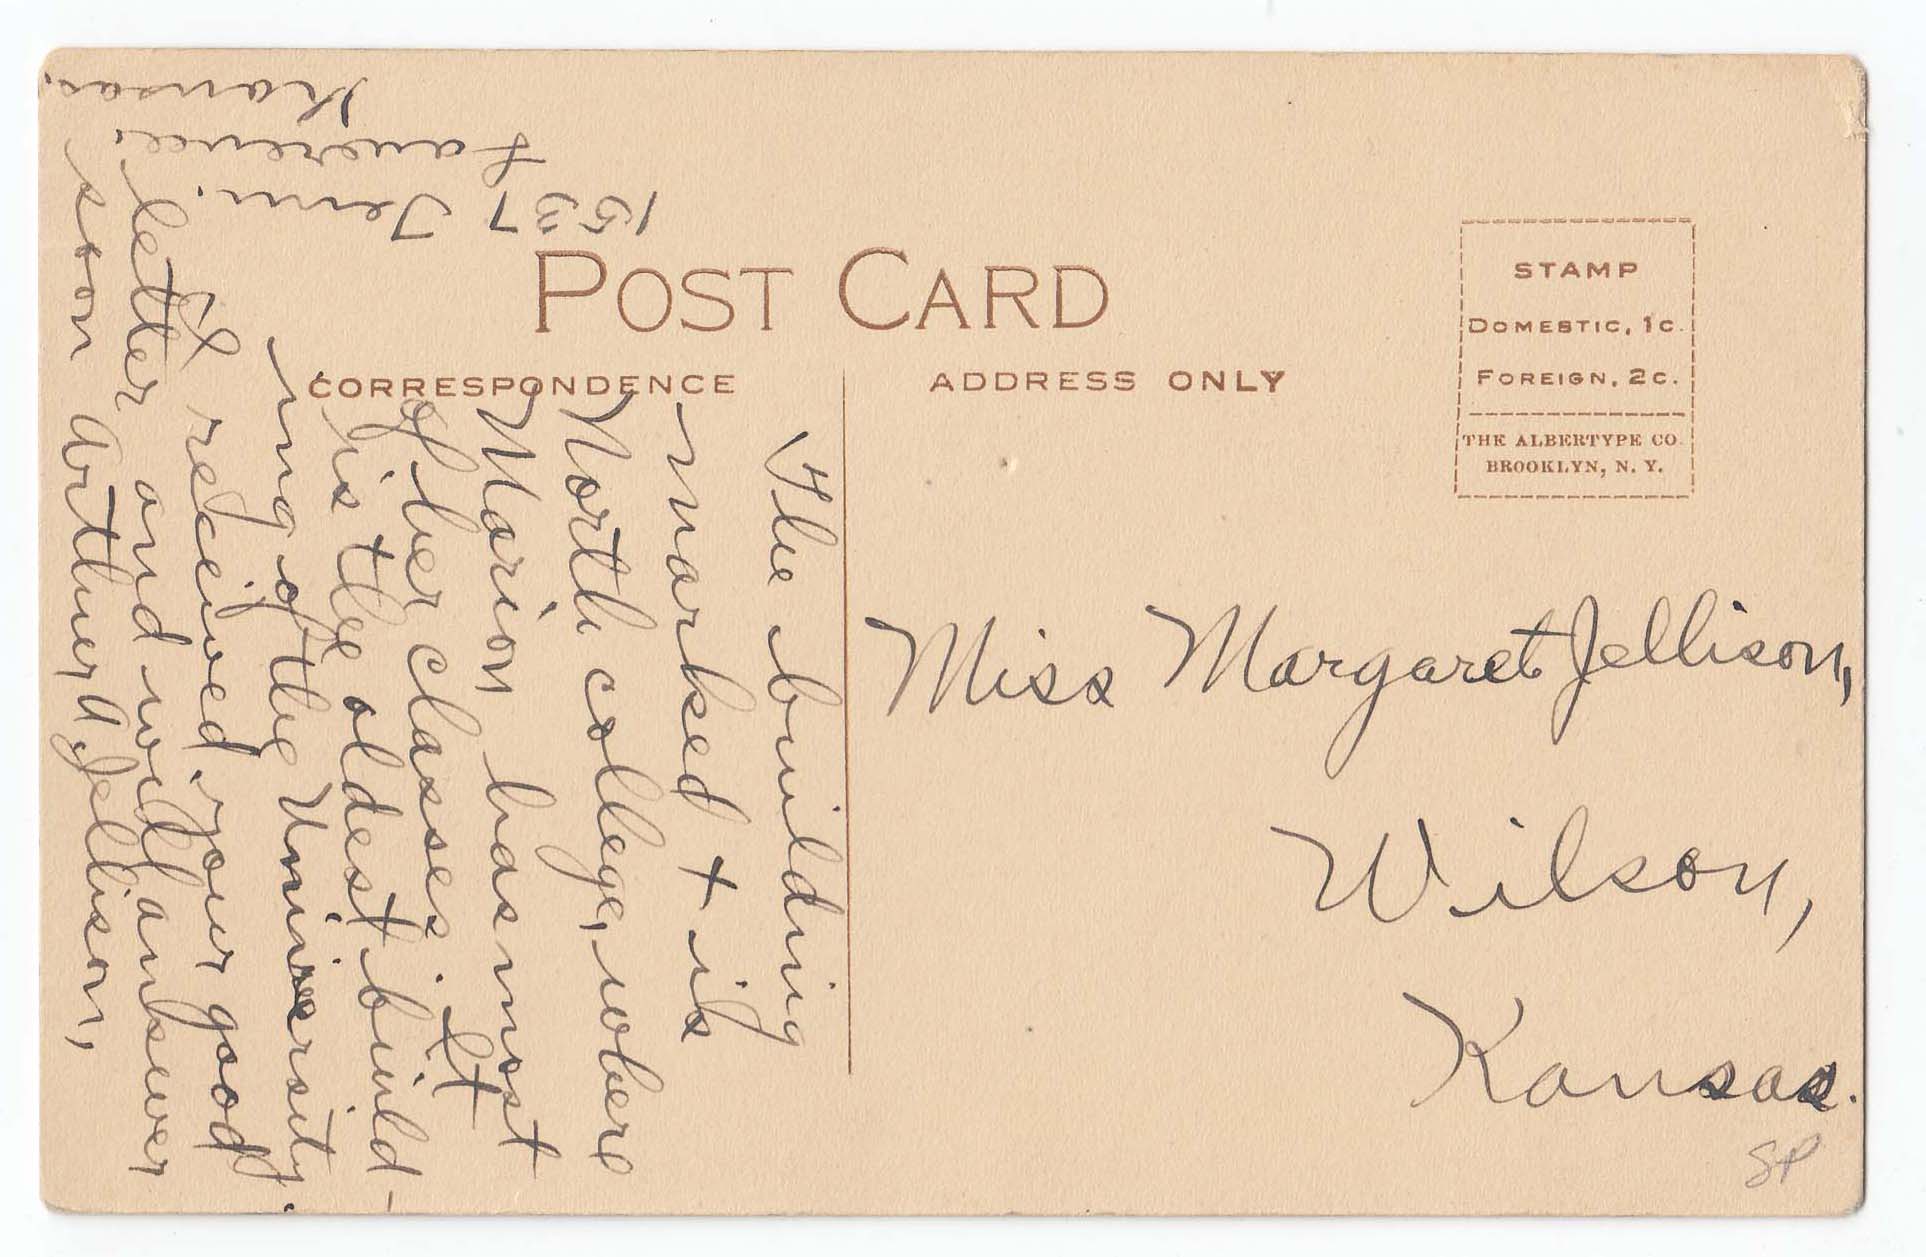 POST CARD
CORRESPONDENCE
ADDRESS ONLY
STAMP
DOMESTIC, 1C.
FOREIGN, 2C.
THE ALBERTYPE CO.
BROOKLYN, N. Y.
1537 Tenn.
Lawrence,
Kansas.
The building
marked + is
North college, where
Marion has most
of her classes. It
is the oldest build-
ing of the University.
I received your good
letter and will ankswer
soon Arthur A. Jellison,
Miss Margaret Jellison,
Wilson,
Kansas.
SP